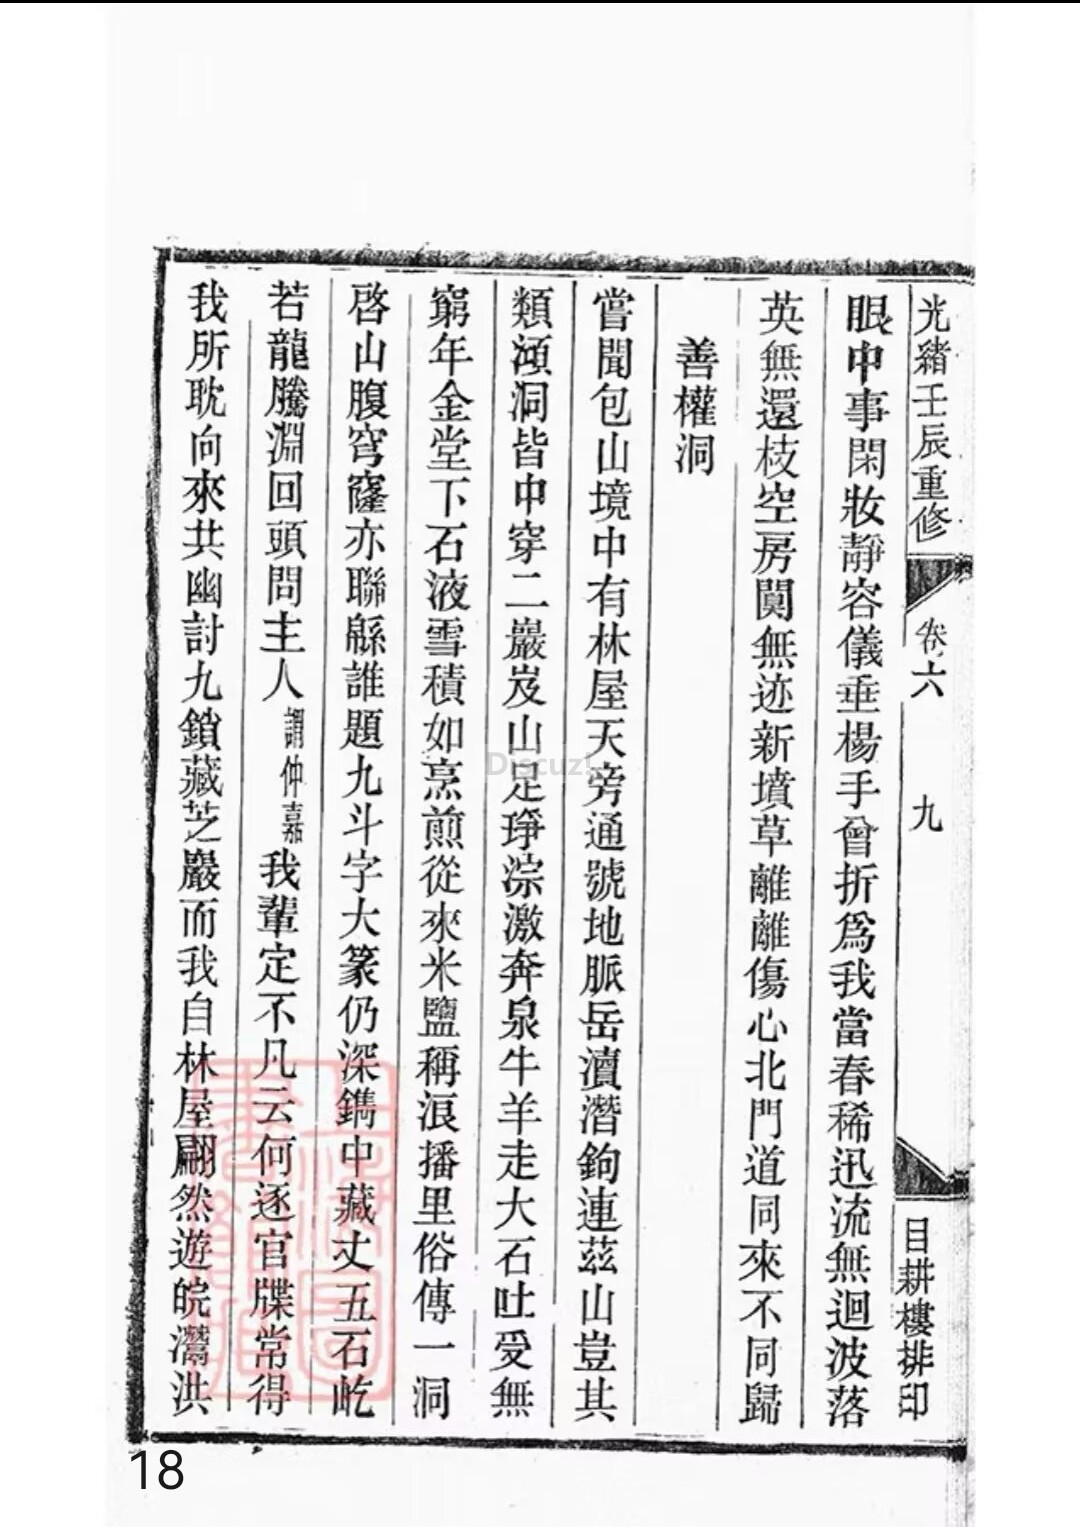 光緒壬辰重修
卷六
九
目耕樓排印
眼中事閑妝靜容儀垂楊手曾折爲我當春稀迅流無迴波落
英無還枝空房闃無迹新墳草離離傷心北門道同來不同歸
善權洞
嘗聞包山境中有林屋天旁通號地脈岳瀆潛鉤連茲山豈其
類澒洞皆中穿二巖岌山足琤淙激奔泉牛羊走大石吐受無
窮年金堂下石液雪積如烹煎從來米鹽稱浪播里俗傳一洞
啓山腹穹窿亦聯緜誰題九斗字大篆仍深鐫中藏丈五石屹
若龍騰淵回頭問主人謂仲嘉我輩定不凡云何逐官牒常得
我所耽向來共幽討九鎖藏芝巖而我自林屋翩然遊皖灊洪
Discuz!
上海圖書館藏
18